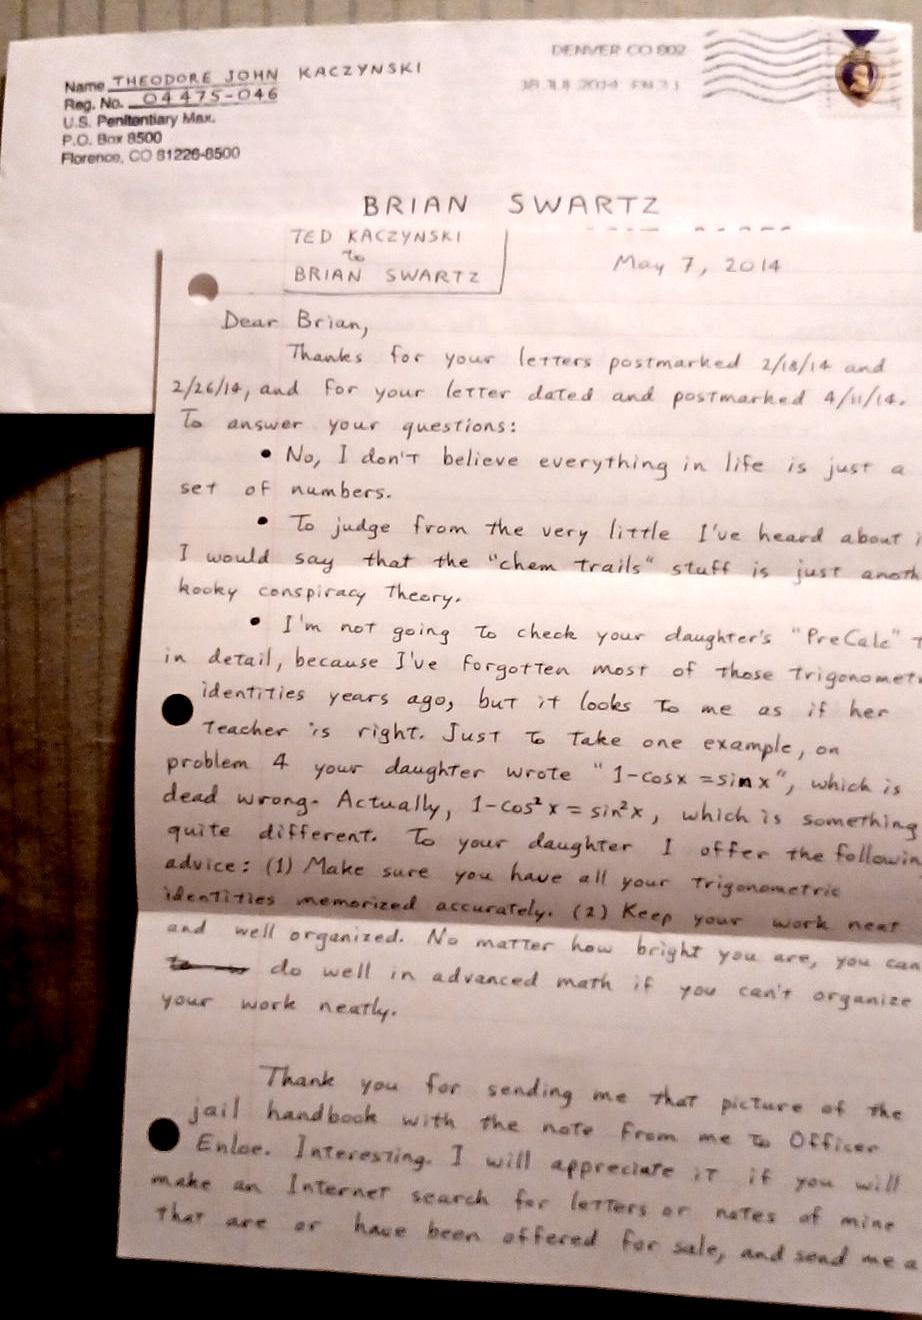 Name THEODORE JOHN KACZYNSKI
Reg. No. 04475-046
U.S. Penitentiary Max.
P.O. Box 8500
Florence, CO 81226-8500
DENVER CO 802
2014
BRIAN SWARTZ
TED KACZYNSKI
to
BRIAN SWARTZ
May 7, 2014
Dear Brian,
Thanks for your letters postmarked 2/18/14 and
2/26/14, and for your letter dated and postmarked 4/11/14.
To answer your questions:
• No, I don't believe everything in life is just a
set of numbers.
• To judge from the very little I've heard about i
I would say that the "chem trails" stuff is just anoth
kooky conspiracy theory.
• I'm not going to check your daughter's "PreCalc" t
in detail, because I've forgotten most of those trigonometr
identities years ago, but it looks to me as if her
teacher is right. Just to take one example, on
problem 4 your daughter wrote "1-cosx = sinx", which is
dead wrong. Actually, 1-cos²x = sin²x, which is something
quite different. To your daughter I offer the followin
advice: (1) Make sure you have all your trigonometric
identities memorized accurately. (2) Keep your work neat
and well organized. No matter how bright you are, you can
do well in advanced math if you can't organize
your work neatly.
Thank you for sending me that picture of the
jail handbook with the note from me to Officer
Enloe. Interesting. I will appreciate it if you will
make an Internet search for letters or notes of mine
that are or have been offered for sale, and send me a